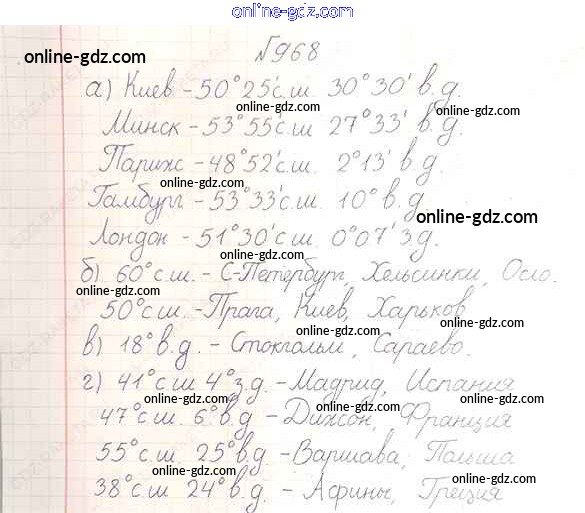 online-gdz.com
№968
online-gdz.com
а) Киев - 50°25'с.ш. 30°30' в.д.
online-gdz.com
online-gdz.com
Минск - 53°55'с.ш. 27°33' в.д.
online-gdz.com
Париж - 48°52'с.ш. 2°13' в.д.
online-gdz.com
Гамбург - 53°33'с.ш. 10° в.д.
online-gdz.com
Лондон - 51°30'с.ш. 0°07' з.д.
online-gdz.com
б) 60°с.ш. - С-Петербург, Хельсинки, Осло.
online-gdz.com
50°с.ш. - Прага, Киев, Харьков
online-gdz.com
в) 18°в.д. - Стокгольм, Сараево.
online-gdz.com
г) 41°с.ш 4°з.д. - Мадрид, Испания
online-gdz.com
47°с.ш. 6°в.д - Дижон, Франция
online-gdz.com
55°с.ш. 25°в.д. - Варшава, Польша
online-gdz.com
38°с.ш 24°в.д. - Афины, Греция
online-gdz.com